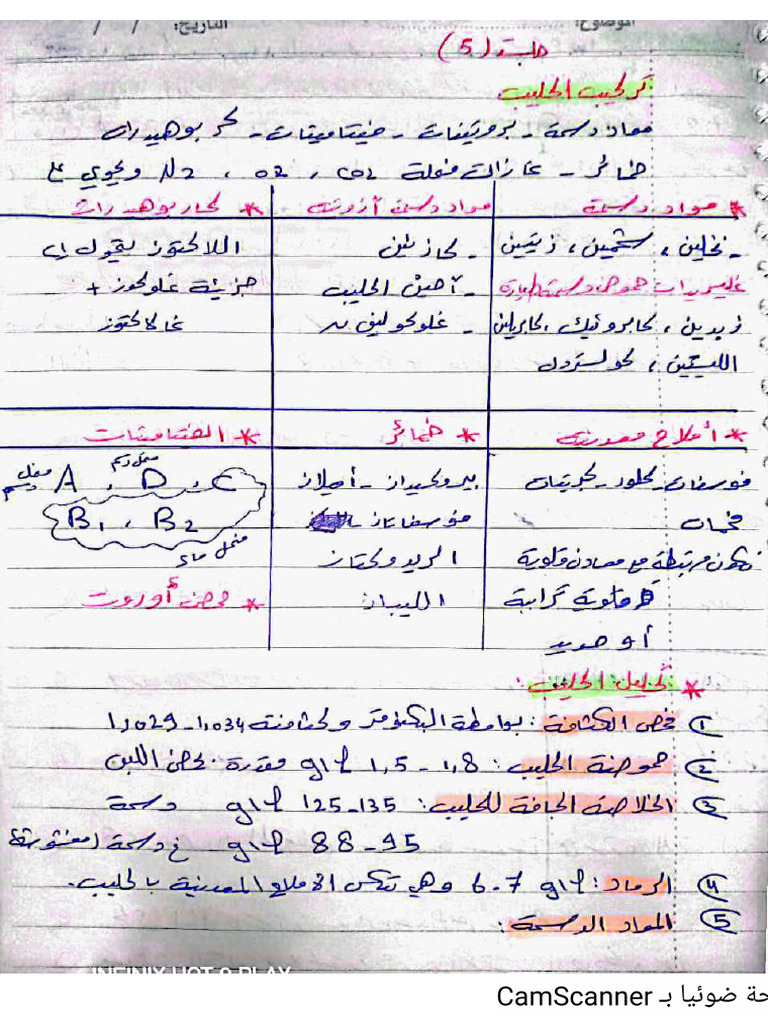 الموضوع: التاريخ: / /
جلسة (5)
تركيب الحليب
مواد دسمة - بروتينات - فيتامينات - كربوهيدرات
خمائر - غازات منحلة CO2 ، O2 ، N2 ويحوي
* مواد دسمة
- نخلين ، شحمين ، زيتين
غليسريدات حموض دسمة طيارة
زبدين ، كابروئيك ، كابريلين
الليستين ، كولسترول
مواد دسمة آزوتية
- كازئين
- آحين الحليب
- غلوكولين
* كاربوهيدرات
اللاكتوز يتحول إلى
جزيئة غلوكوز +
غالاكتوز
* أملاح معدنية
فوسفات - كلور - كبريتات
فحمات
تكون مرتبطة مع معادن قلوية
قلوية ترابية
أو حديد
* خمائر
بيروكسيداز - أميلاز
فوسفاتاز
الريدوكتاز
الليباز
* الفيتامينات
A ، D ، C
منحل دسم
منحل دسم
B1 ، B2
منحل ماء
* حمض أوروت
* تحليل الحليب :
1) فحص الكثافة : بواسطة البكنومتر وكثافته 1,034 - 1,029
2) حموضة الحليب : 1,8 - 1,5 g/l مقدرة بحمض اللبن
3) الخلاصة الجافة للحليب : 125-135 g/l دسمة
88-95 g/l غ دسمة (مغشوشة)
4) الرماد : 6-7 g/l وهي تعكس الأملاح المعدنية بالحليب .
5) المواد الدسمة :
INFINIX HOT 9 PLAY
حة ضوئيا بـ CamScanner